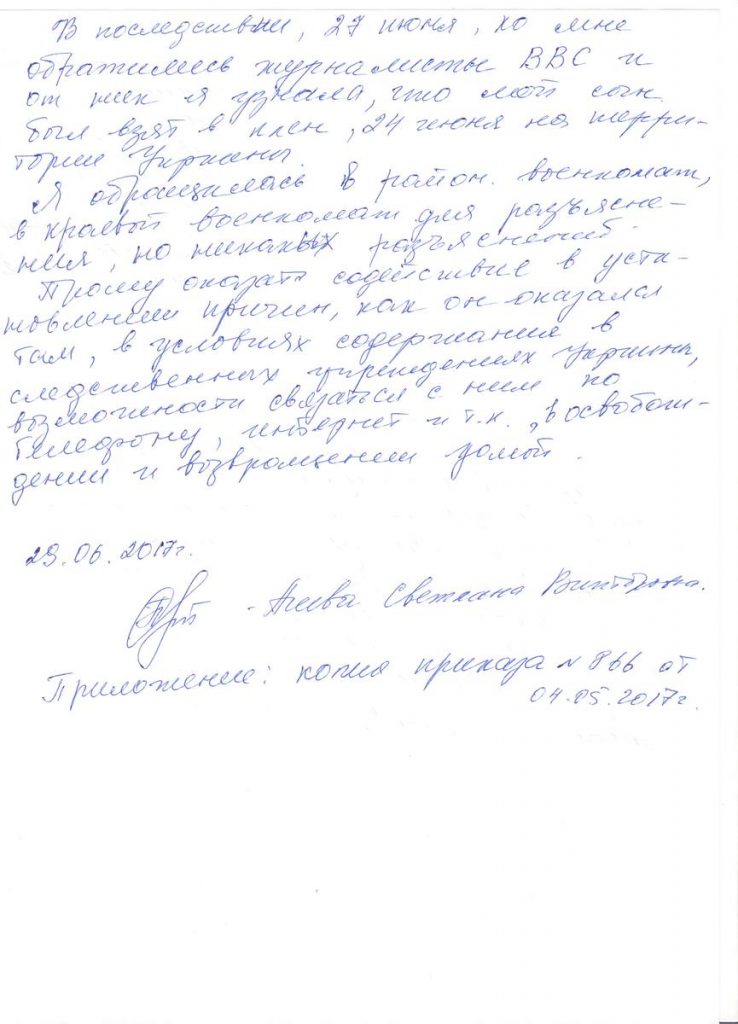 В последствии, 27 июня, ко мне
обратились журналисты ВВС и
от них я узнала, что мой сын
был взят в плен, 24 июня на терри-
тории Украины.
Я обращалась в район. военкомат,
в краевой военкомат для разъясне-
ния, но никаких разъяснений.
Прошу оказать содействие в уста-
новлении причин, как он оказался
там, в условиях содержания в
следственных учреждениях Украины,
возможности связаться с ним по
телефону, интернет и т.к., в освобож-
дении и возвращении домой.
29.06.2017г.
- Агеева Светлана Викторовна.
Приложение: копия приказа № 866 от
04.05.2017г.